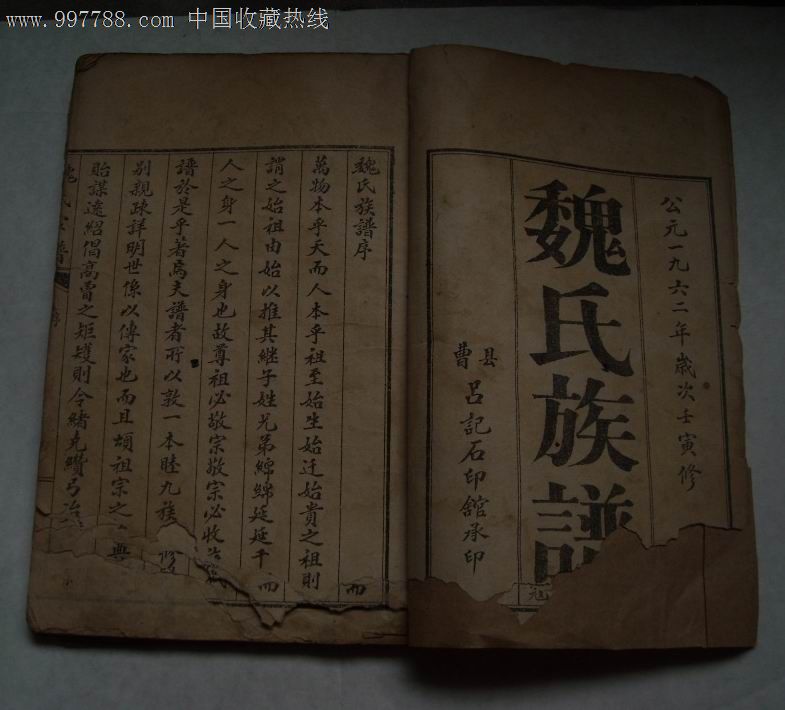 www.997788.com 中国收藏热线
公元一九六二年歲次壬寅修
魏氏族譜
曹縣
呂記石印舘承印
魏氏族譜序
萬物本乎天而人本乎祖至始生始迁始貴之祖則
謂之始祖由始以推其継子姓兄弟綿綿延延千
而
人之身一人之身也故尊祖必敬宗敬宗必收
譜於是乎著焉夫譜者所以敦一本睦九族
别親疎詳明世係以傳家也而且頌祖宗之
貽謀遠紹倡高曾之矩矱則令緒克纘弓冶
氏
序